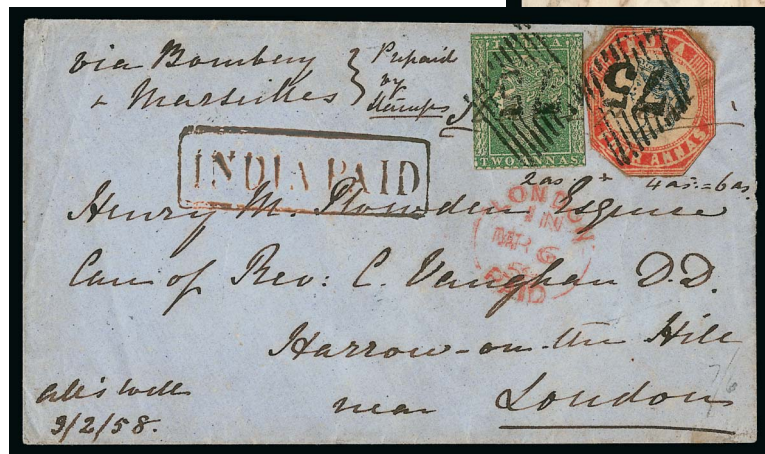 via Bombay
& Marseilles
Prepaid
by
stamps
TWO ANNAS
INDIA
ANNAS
2as + 4as. = 6as.
INDIA PAID
LONDON
MR 6
PAID
Henry M. Plowden Esquire
Care of Rev: C. Vaughan D.D.
Harrow-on-the Hill
near London
All's well
9/2/58.